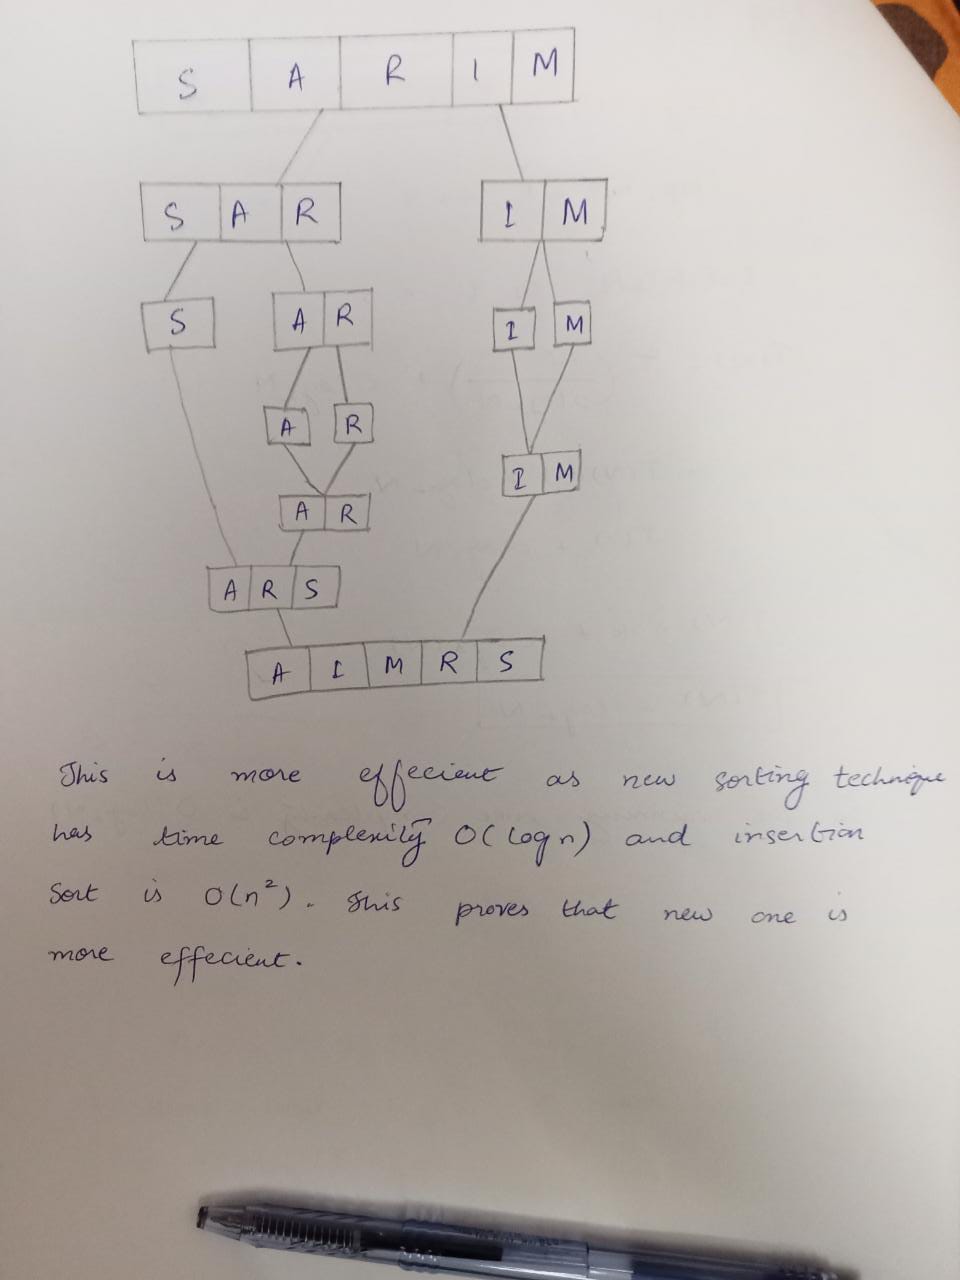 S A R I M
S A R I M
S A R I M
A R
A R I M
A R S
A I M R S
This is more effecient as new sorting technique
has time complexity O(log n) and insertion
Sort is O(n²). This proves that new one is
more effecient.